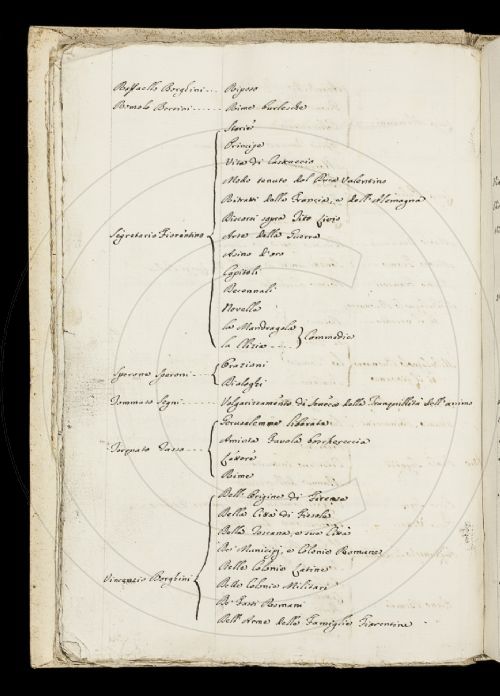 Raffaello Borghini... Riposo
Romolo Bertini...... Rime burlesche
Storie
Principe
Vita di Castruccio
Modo tenuto dal Duca Valentino
Ritratti della Francia, e dell'Alemagna
Discorsi sopra Tito Livio
Segretario Fiorentino Arte della Guerra
Asino d'oro
Capitoli
Decennali
Novella
la Mandragola
la Clizia .... Commedie
Sperone Speroni.... Orazioni
Dialoghi
Tommaso Segni....... Volgarizzamento di Seneca della Tranquillità dell'animo
Gerusalemme liberata
Aminta Favola boschereccia
Torquato Tasso... Lettere
Rime
Dell'Origine di Firenze
Della Città di Fiesole
Della Toscana, e sue Città
De' Municipj, e Colonie Romane
Delle Colonie Latine
Vincenzio Borghini Delle Colonie Militari
De' Fasti Romani
Dell'Arme delle Famiglie Fiorentine